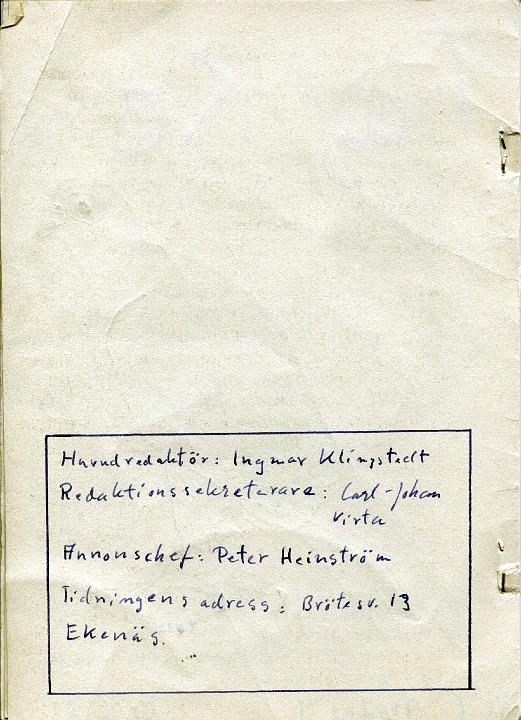 Huvudredaktör: Ingmar Klingstedt
Redaktionssekreterare: Carl-Johan
Virta
Annonschef: Peter Heinström
Tidningens adress: Brötesv. 13
Ekenäs.